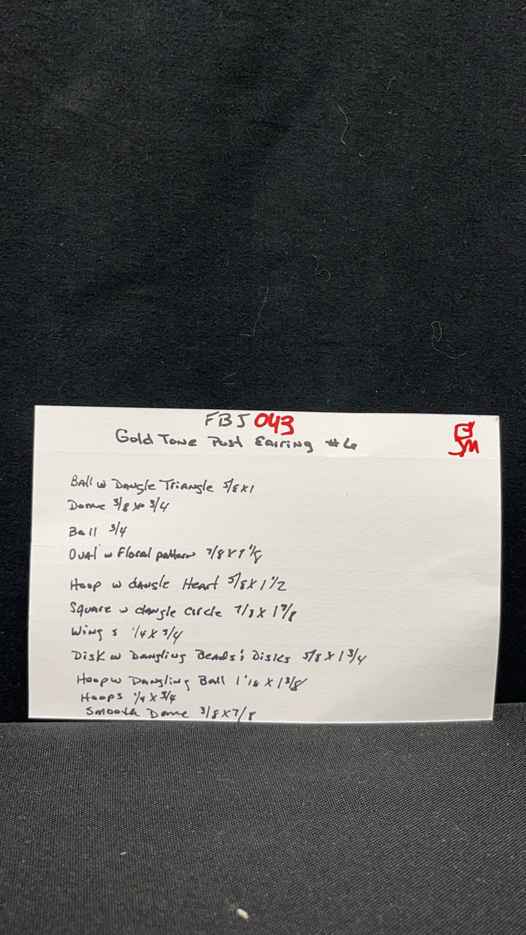 FBJ 043
Gold Tone Post Earring #6
Ball w Dangle Triangle 5/8 x 1
Dome 3/8 x 3/4
Ball 3/4
Oval w Floral pattern 7/8 x 1 1/8
Hoop w dangle Heart 5/8 x 1 1/2
Square w dangle circle 7/8 x 1 7/8
Wings 1/4 x 3/4
Disk w Dangling Beads & Disks 5/8 x 1 3/4
Hoop w Dangling Ball x 1 3/8
Hoops 1/4 x 3/4
Smooth Dome 3/8 x 7/8